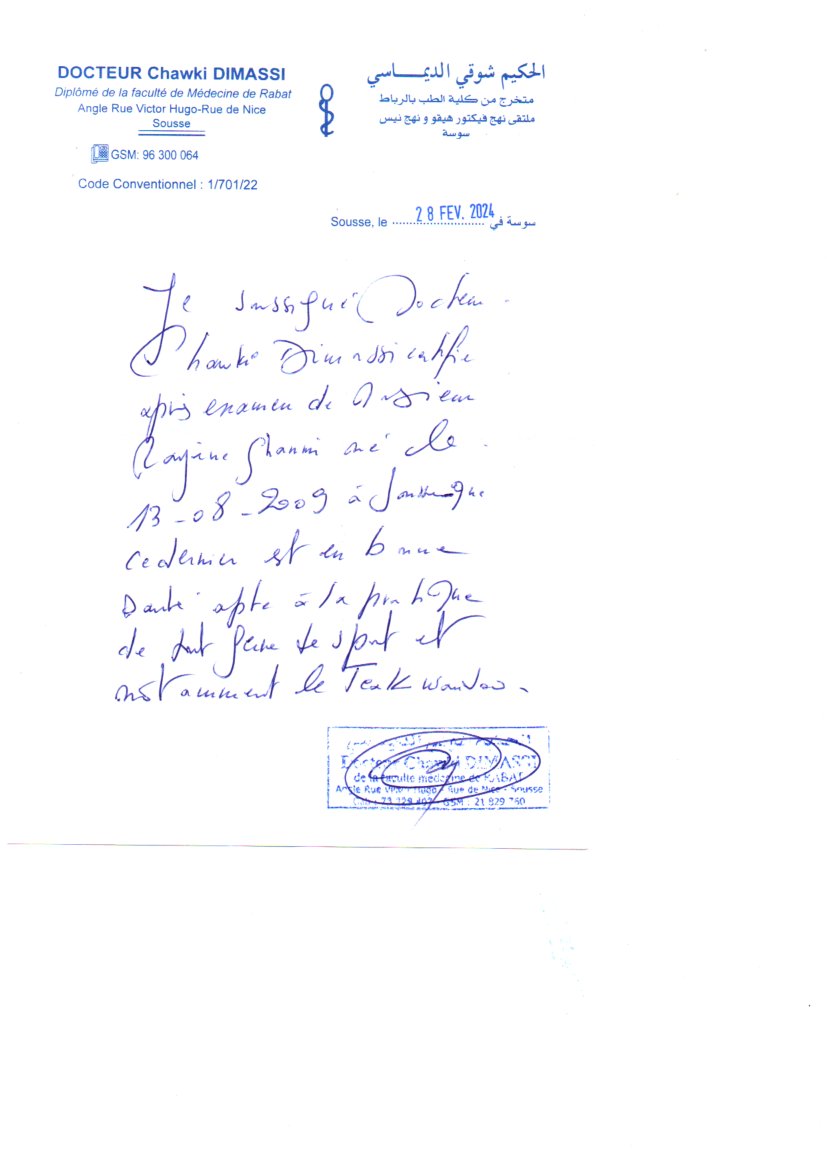 DOCTEUR Chawki DIMASSI
Diplômé de la faculté de Médecine de Rabat
Angle Rue Victor Hugo-Rue de Nice
Sousse
GSM: 96 300 064
Code Conventionnel : 1/701/22
الحكيم شوقي الديماسي
متخرج من كلية الطب بالرباط
ملتقى نهج فيكتور هيقو و نهج نيس
سوسة
Sousse, le 28 FEV. 2024 سوسة في
Je soussigné Docteur
Chawki Dimassi certifie
après examen de Monsieur
Rayène Ghanmi né le
13-08-2009 à Sousse que
ce dernier est en bonne
santé apte à la pratique
de tout genre de sport et
notamment le Teakwondoo.
Docteur Chawki DIMASSI
de la faculté médecine de RABAT
Angle Rue Victor Hugo - Rue de Nice - Sousse
GSM : 21 829 760